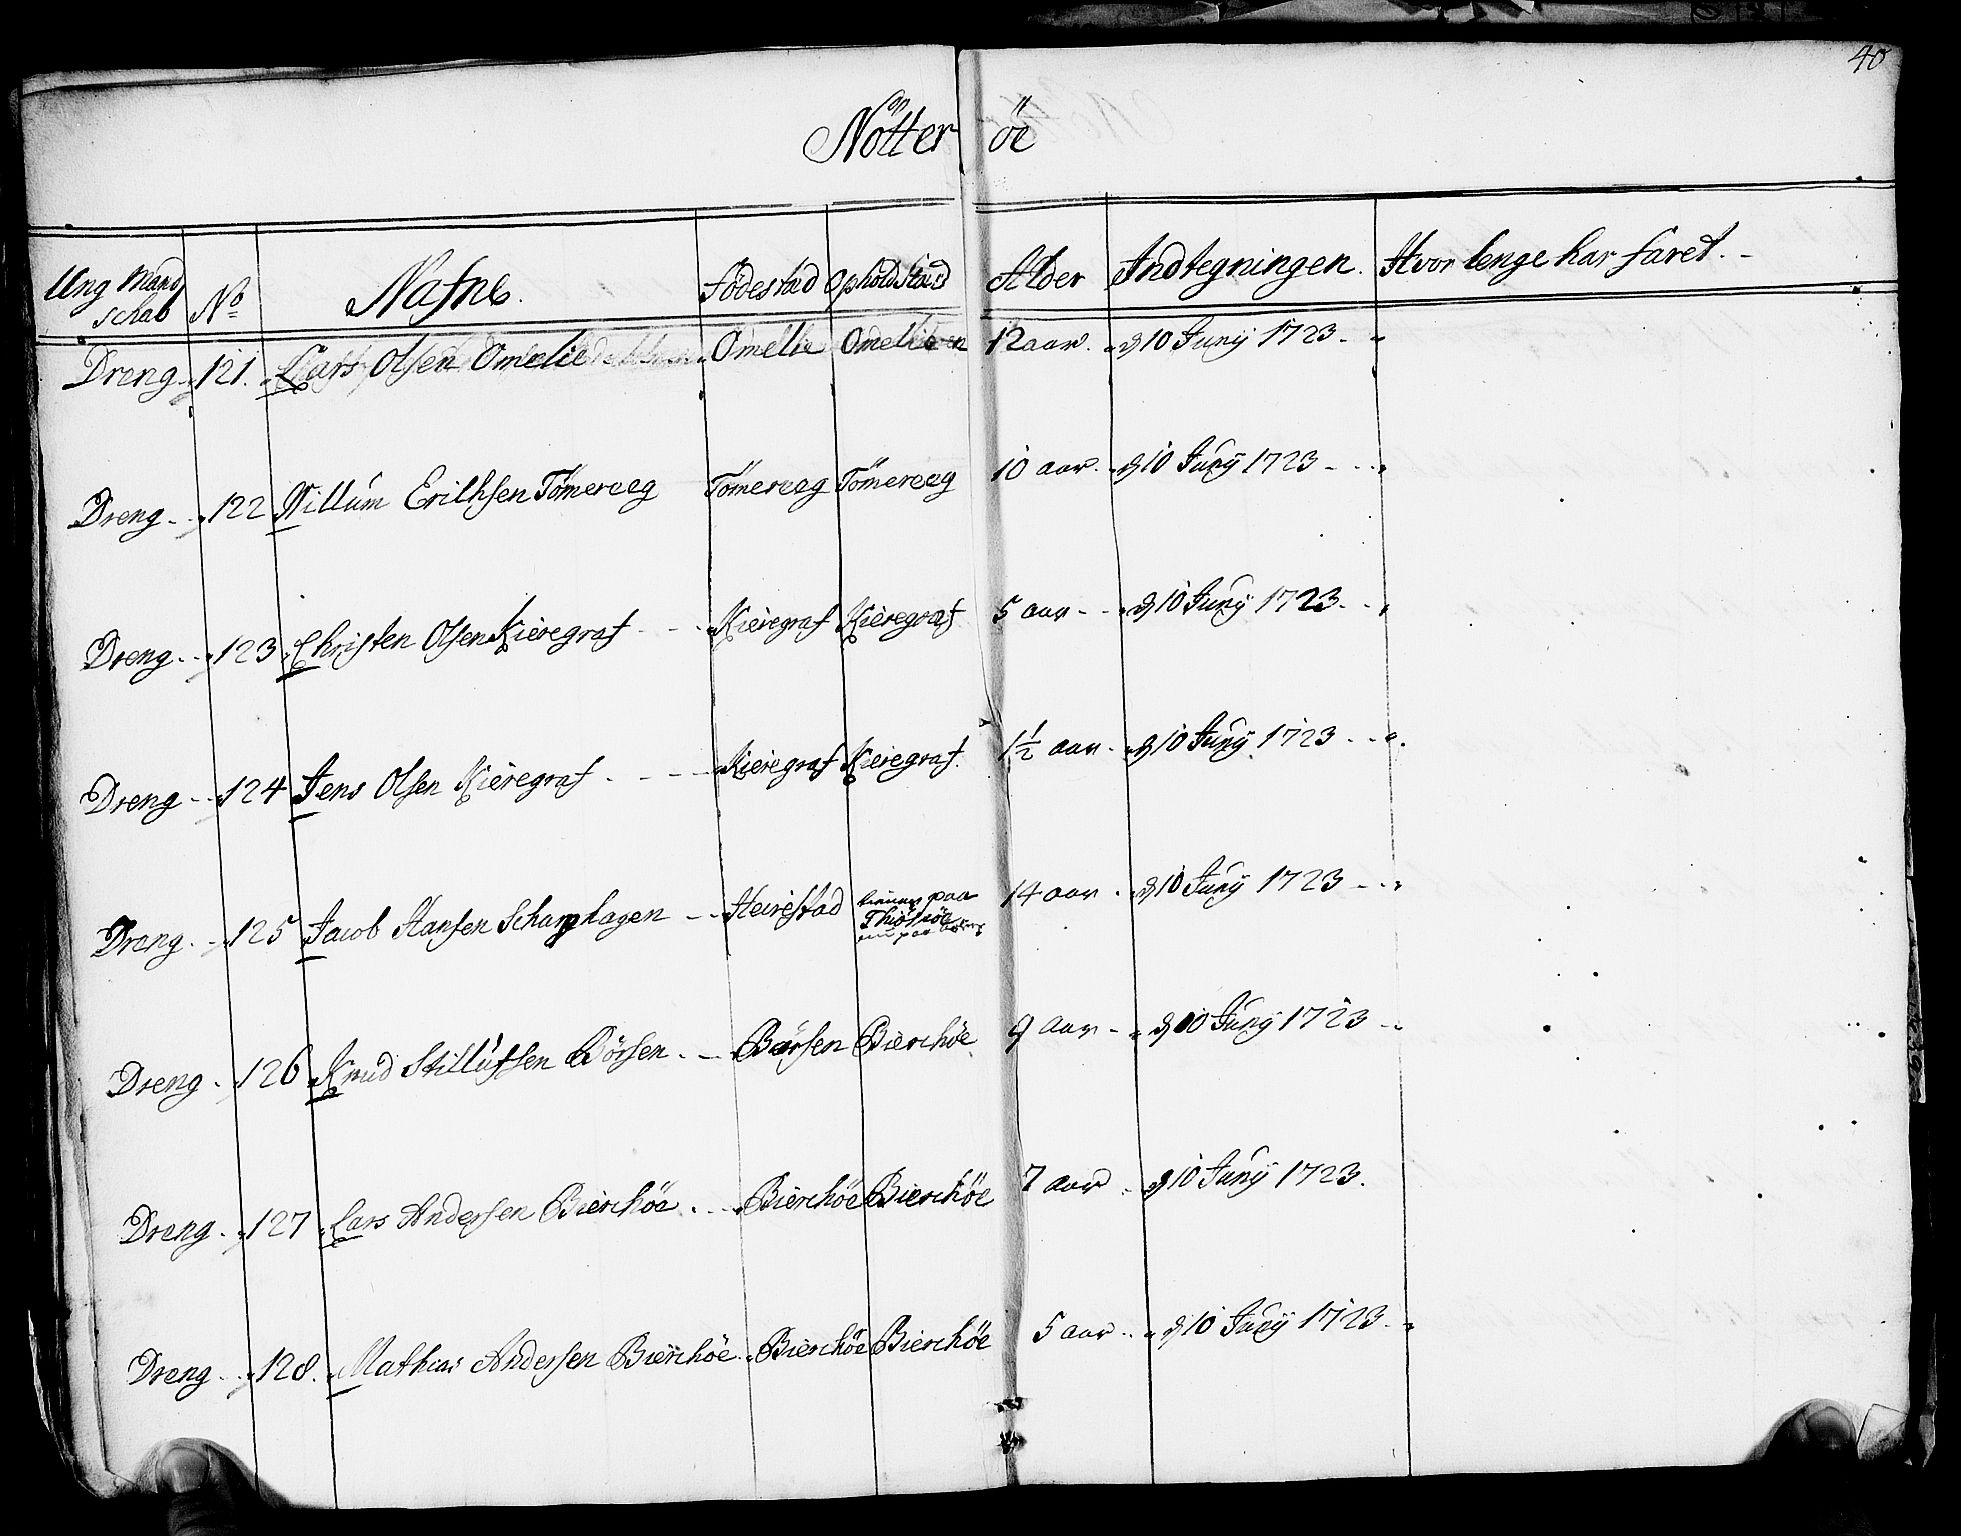 40
Nötter öe
Ung Mand schab No Nafne. Födestad Opholdstæd Alder Indtegningen. Hvor lenge har faret.
Dreng 121. Lars Olsen Omelie Omelie Omelie 12 aar. d 10 Juny 1723
Dreng 122 Nillum Erichsen Tömereeg Tömereeg Tömereeg 10 aar. d 10 Juny 1723
Dreng 123 Christen Olsen Kieregraf Kieregraf Kieregraf 5 aar d 10 Juny 1723
Dreng 124 Jens Olsen Kieregraf Kieregraf Kieregraf. 1½ aar d 10 Juny 1723
Dreng 125 Jacob Hansen Scharphagen Heirestad tienner paa Thiömöe nu paa 14 aar d 10 Juny 1723
Dreng 126 Knud Stillufsen Börsen Börsen Bierchöe 9 aar d 10 Juny 1723
Dreng 127 Lars Andersen Bierchöe Bierchöe Bierchöe 7 aar d 10 Juny 1723.
Dreng 128. Mathias Andersen Bierchöe Bierchöe Bierchöe 5 aar d 10 Juny 1723